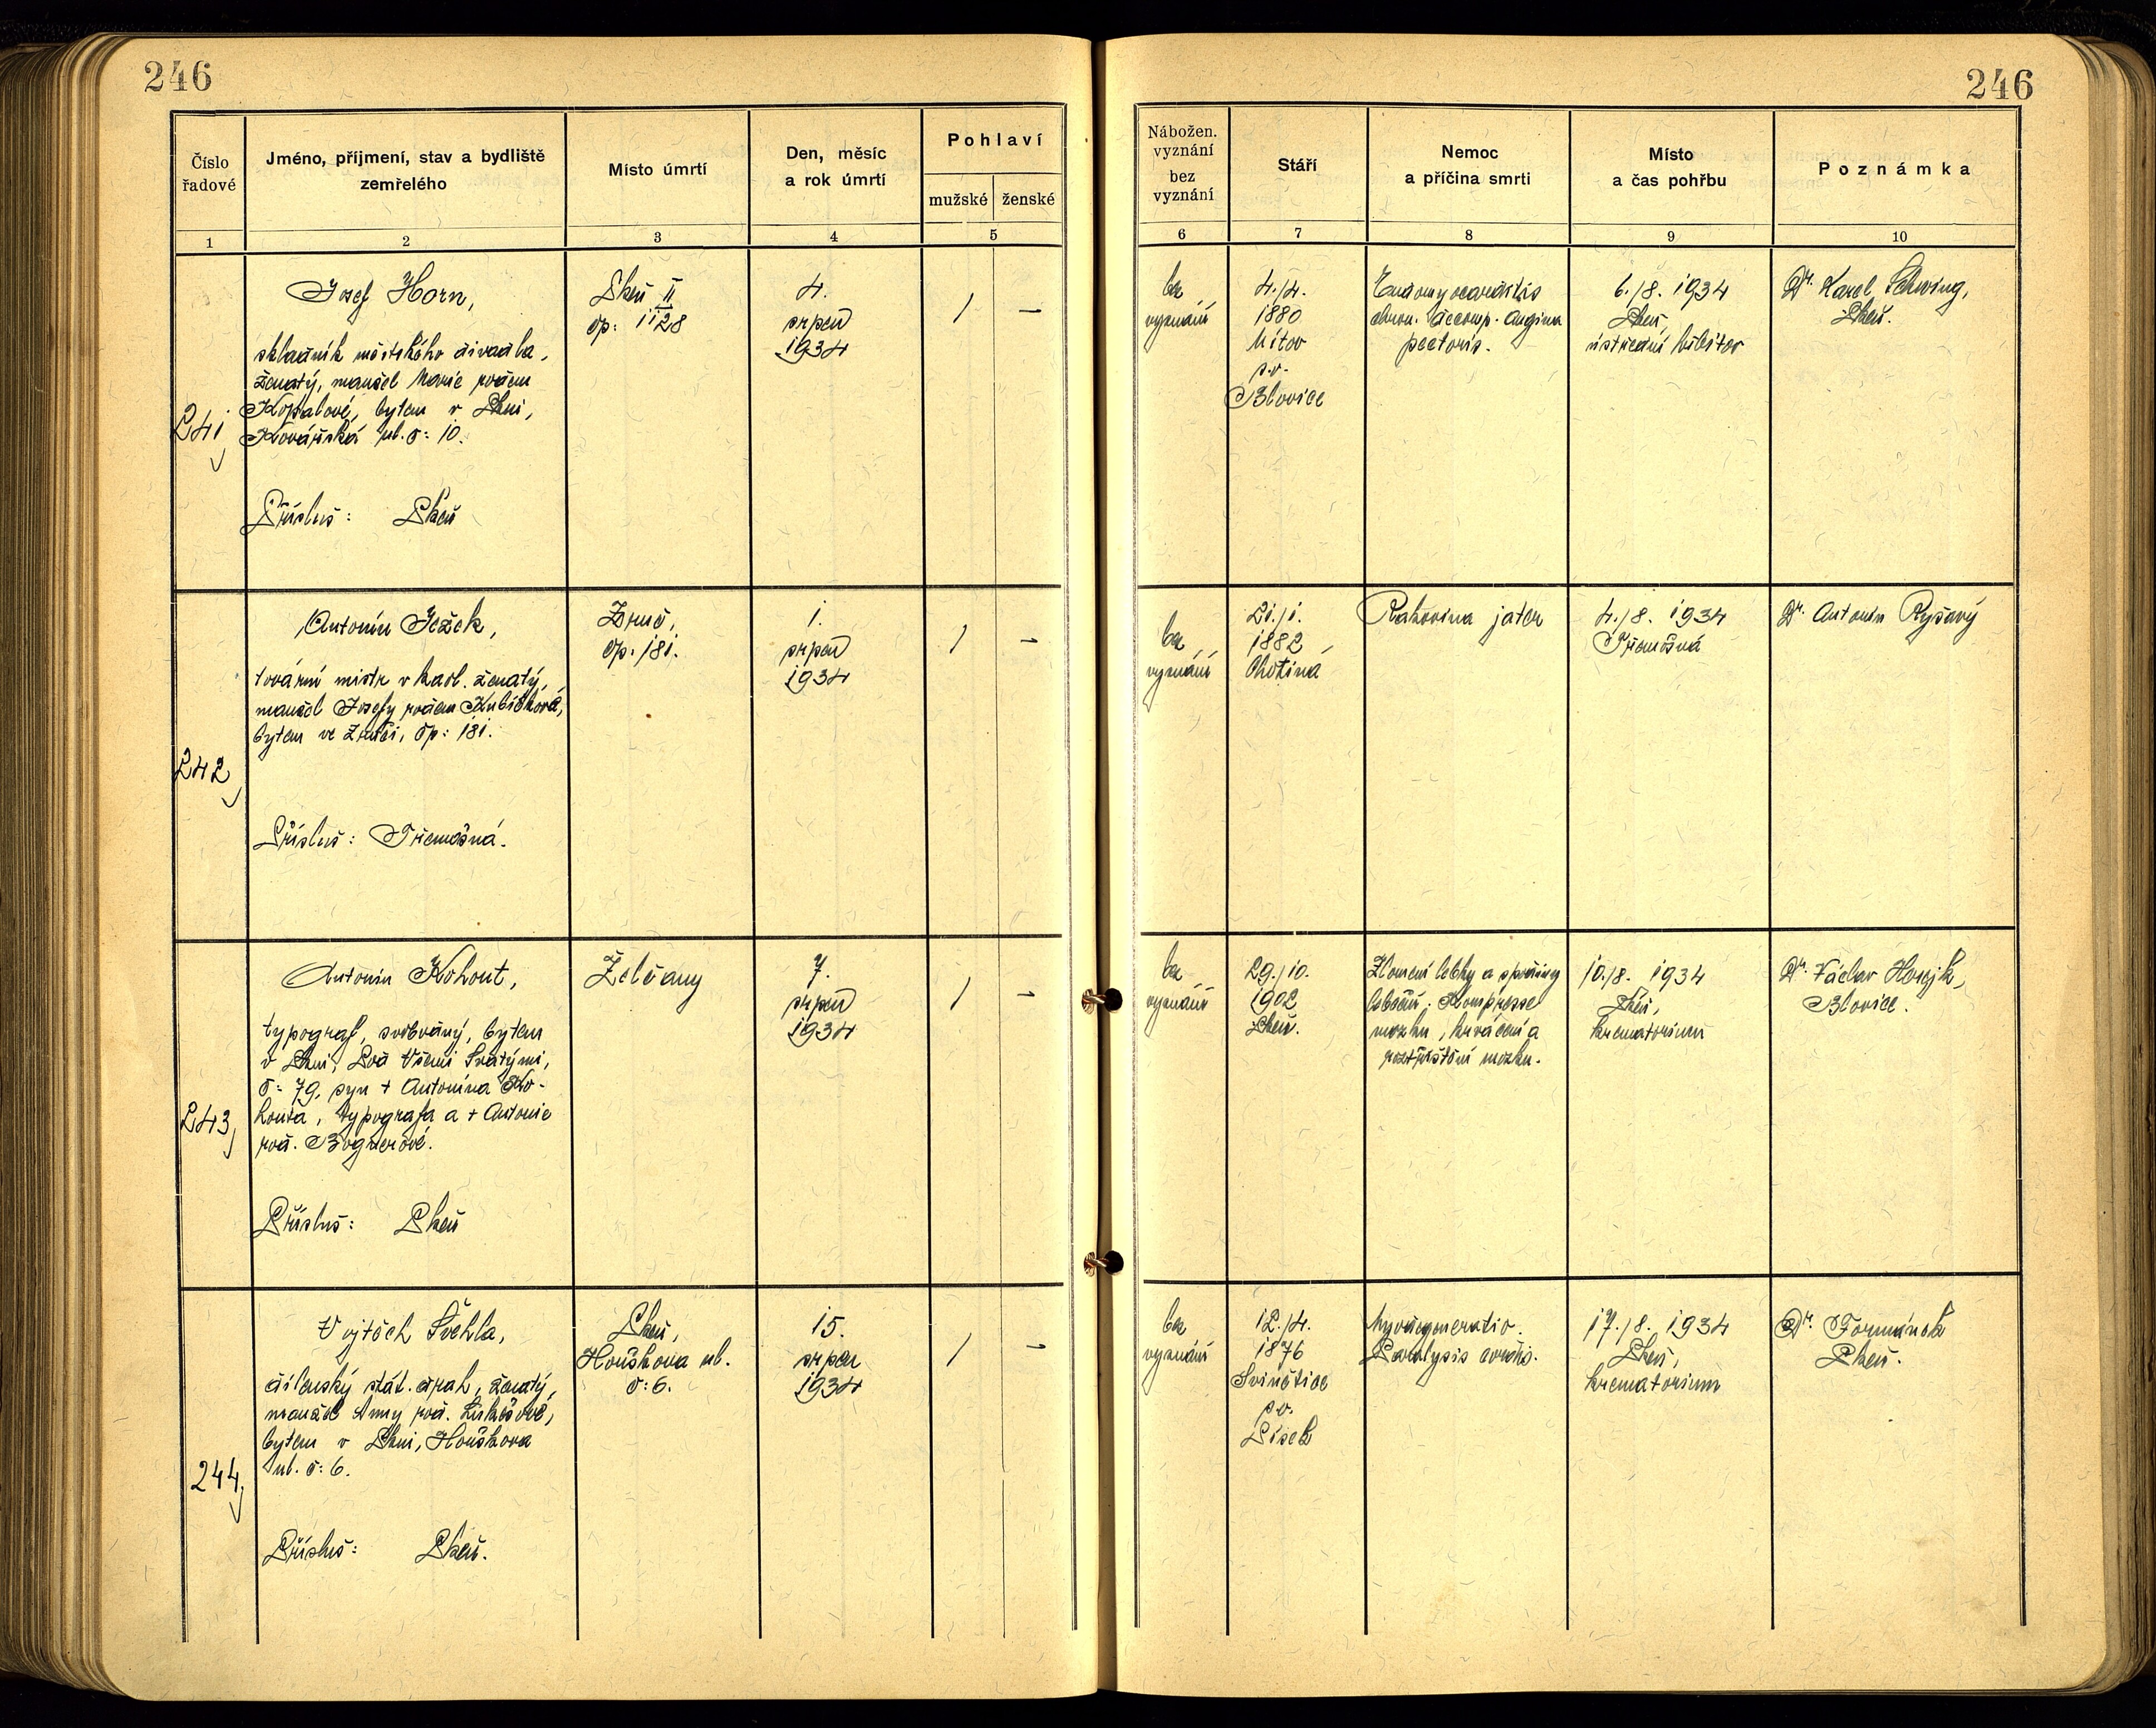 246
246
Číslo řadové
Jméno, příjmení, stav a bydliště zemřelého
Místo úmrtí
Den, měsíc a rok úmrtí
Pohlaví
mužské
ženské
1
2
3
4
5
Nábožen. vyznání bez vyznání
Stáří
Nemoc a příčina smrti
Místo a čas pohřbu
Poznámka
6
7
8
9
10
241
Josef Horn,
skladník městského divadla,
ženatý, manžel Marie rozen
Kopalové, bytem v Plzni,
Kovářská ul. č: 10.
Přísluš: Plzeň
Plzeň II
čp: 1128
4.
srpen
1934
/
—
bez
vyznání
4./4.
1880
Mítov
p.o.
Blovice
Endomyocarditis
chron. accomp. Angina
pectoris.
6./8. 1934
Plzeň,
ústřední hřbitov
Dr. Karel Schwing,
Plzeň.
242
Antonín Ježek,
tovární mistr v kaol. ženatý,
manžel Josefy rozen Kubíčková,
bytem ve Zruči, čp: 181.
Přísluš: Třemošná.
Zruč,
čp: 181.
1.
srpen
1934
/
—
bez
vyznání
21./1.
1882
Chotiná
Rakovina jater
4./8. 1934
Třemošná
Dr. Antonín Ryšavý
243
Antonín Kohout,
typograf, svobodný, bytem
v Plzni, Pod Všemi Svatými,
č: 79, syn + Antonína Ko-
houta, typografa a + Antonie
roz. Bognerové.
Přísluš: Plzeň
Želčany
7.
srpen
1934
/
—
bez
vyznání
29./10.
1902
Plzeň.
Zlomení lebky a spodiny
lebeční. Kompresse
mozku, krvácení a
roztříštění mozku.
10./8. 1934
Plzeň,
krematorium
Dr. Václav
Blovice.
244
Vojtěch Švehla,
dílenský stát. drah, ženatý,
manžel Anny roz. Lukešové,
bytem v Plzni, Houškova
ul. č: 6.
Přísluš: Plzeň.
Plzeň,
Houškova ul.
č: 6.
15.
srpen
1934
/
—
bez
vyznání
12./4.
1876
Svinětice
p.o.
Písek
Myodegeneratio.
Paralysis cordis.
17./8. 1934
Plzeň,
krematorium
Dr. Formánek
Plzeň.